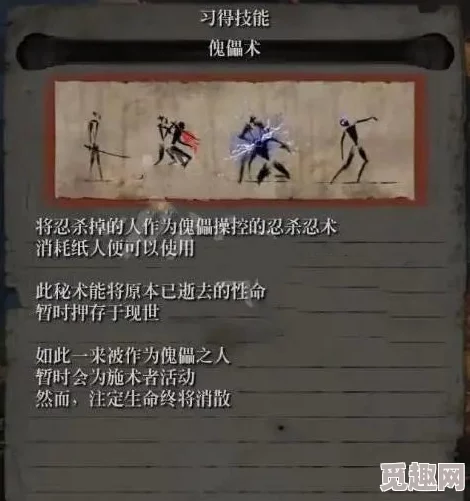 习得技能
傀儡术
将忍杀掉的人作为傀儡操控的忍杀忍术
消耗纸人便可以使用
此秘术能将原本已逝去的性命
暂时押存于现世
如此一来被作为傀儡之人
暂时会为施术者活动
然而，注定生命终将消散
觅趣网